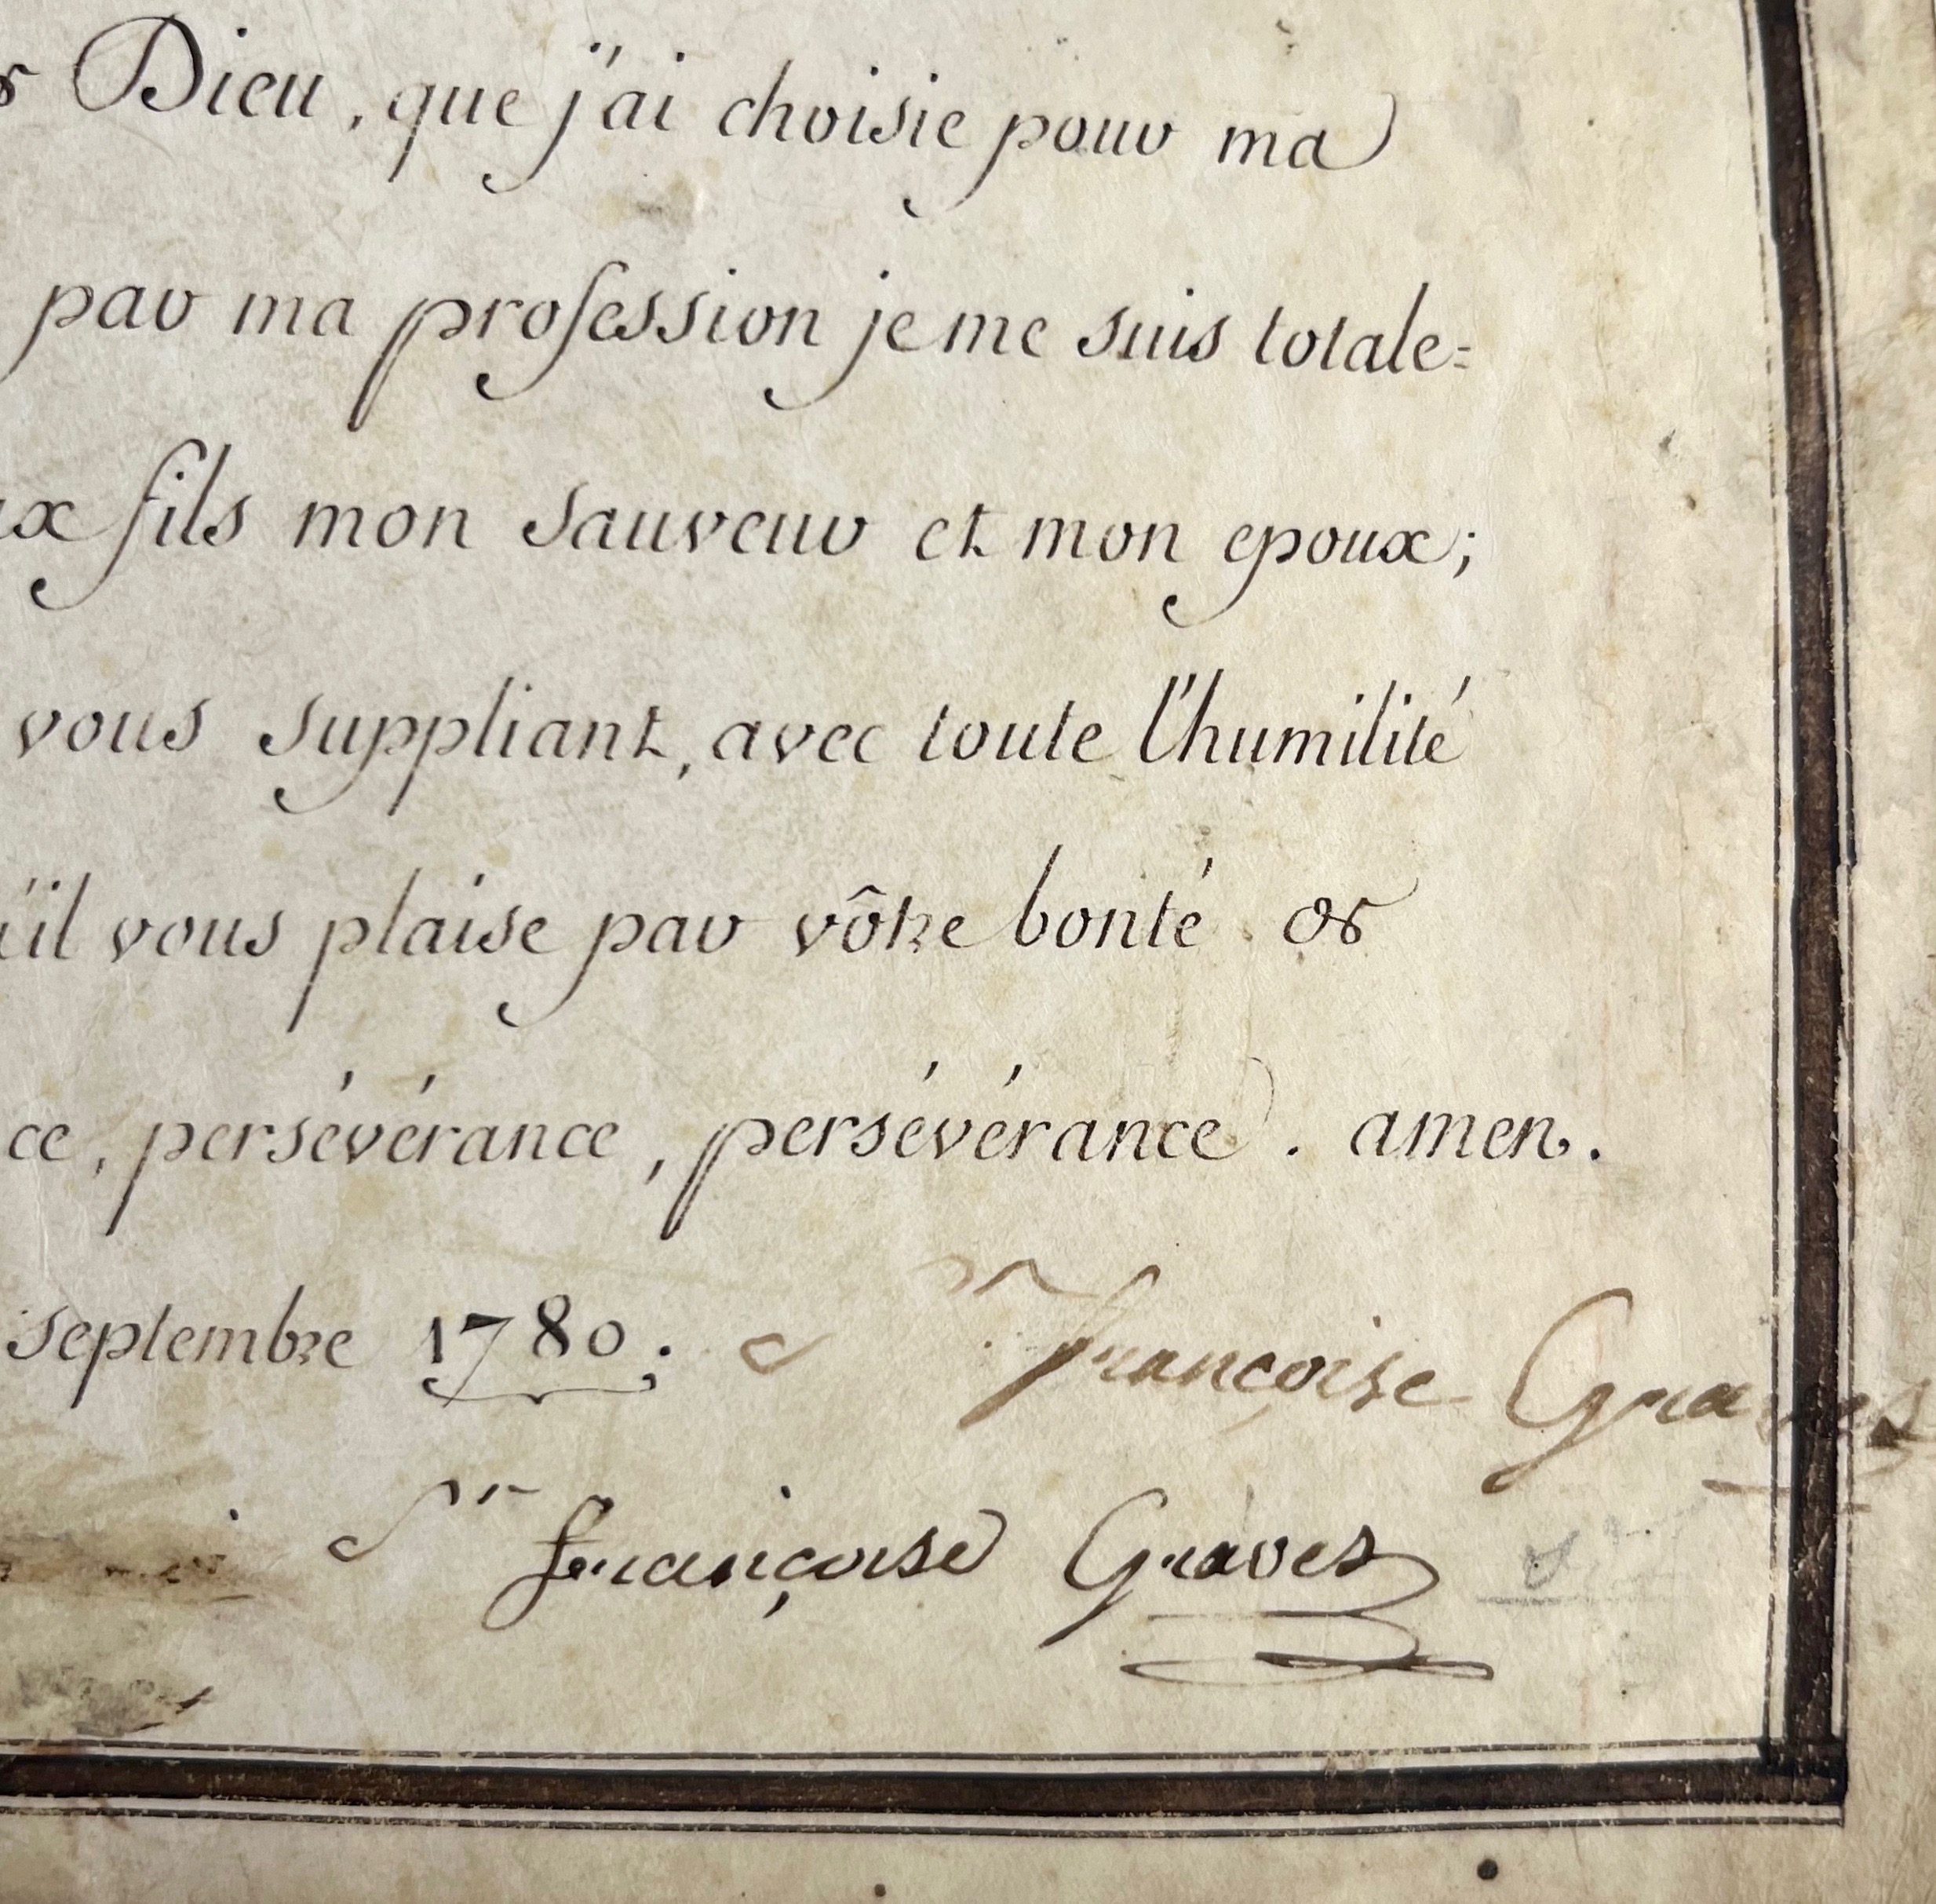 & Dieu, que j'ai choisie pour ma
par ma profession je me suis totale=
ux fils mon sauveur et mon epoux;
vous suppliant, avec toute l'humilité
u'il vous plaise par vôtre bonté &
ce, persévérance, persévérance. amen.
septembre 1780. Sr françoise Graves
Sr françoise Graves